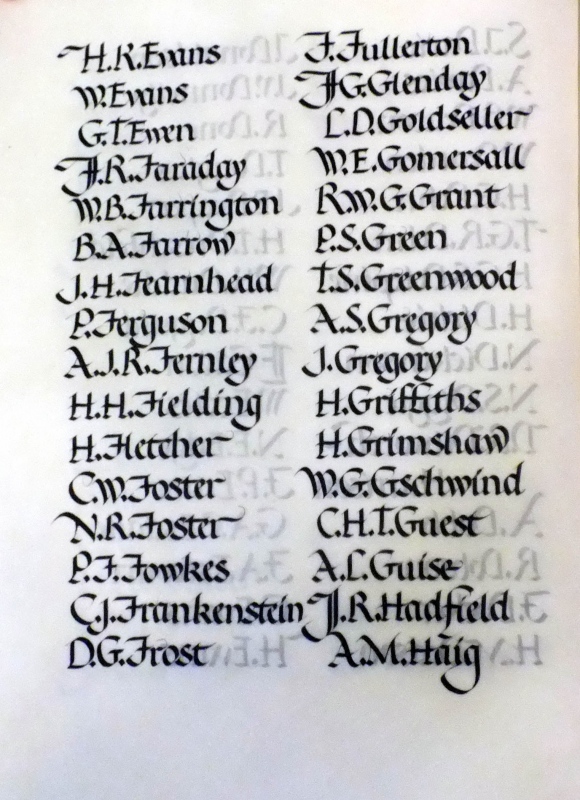 H.K.Evans
W.Evans
G.T.Ewen
H.R.Faraday
W.B.Farrington
B.A.Farrow
J.H.Fearnhead
P.Ferguson
A.J.R.Fernley
H.H.Fielding
H.Fletcher
C.W.Foster
N.R.Foster
P.F.Fowkes
C.J.Frankenstein
D.G.Frost
F.Fullerton
H.G.Glenday
L.D.Goldseller
W.E.Gomersall
R.W.G.Grant
P.S.Green
T.S.Greenwood
A.S.Gregory
J.Gregory
H.Griffiths
H.Grimshaw
W.G.Gschwind
C.H.T.Guest
A.L.Guise
J.R.Hadfield
A.M.Haig